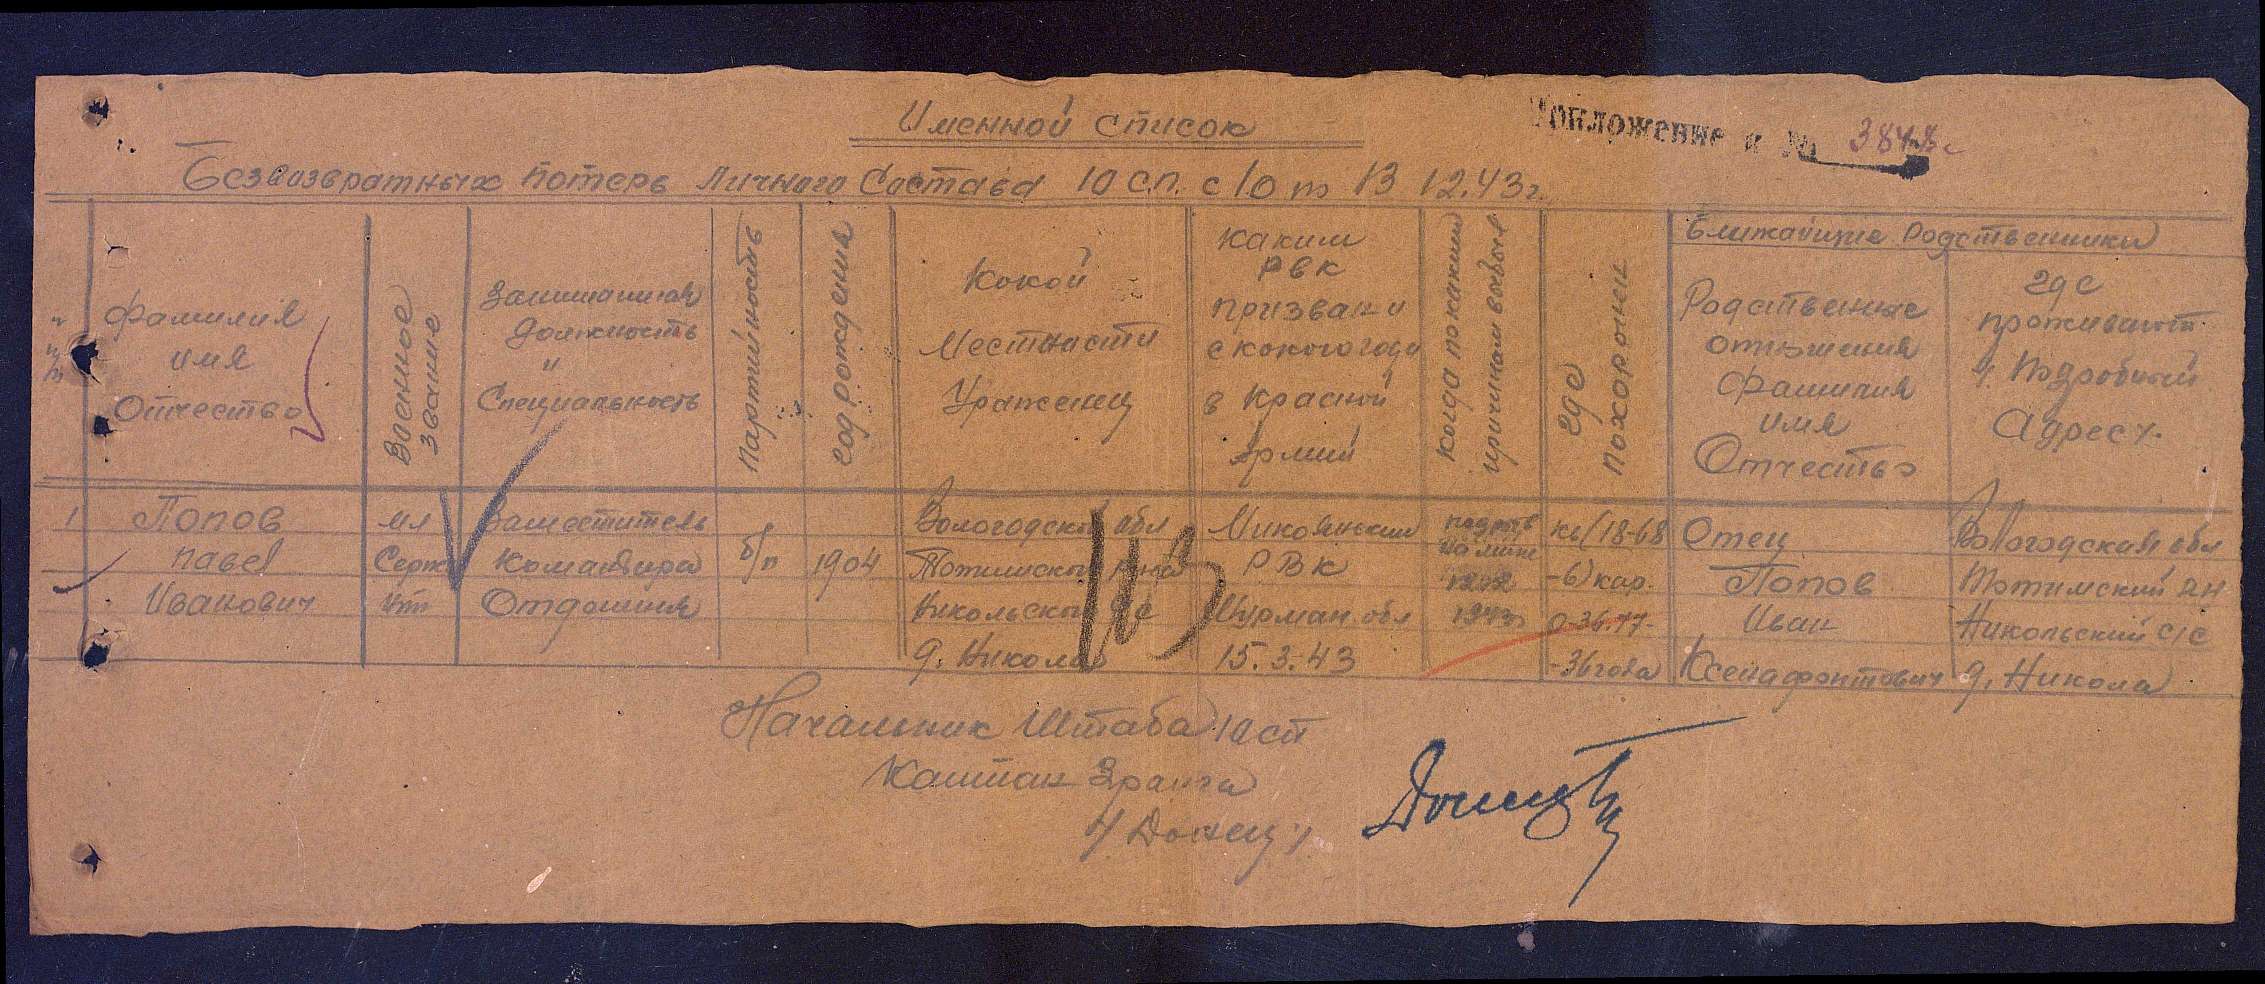 Именной список
Приложение к №
Безвозвратных потерь Личного Состава 10 с.п. с 10 по 13 12.43г.
Фамилия
имя
Отчество
Военное
звание
Занимаемая
Должность
и
Специальность
Партийность
Год рождения
Какой
Местности
Уроженец
Каким
РВК
призван и
с какого года
в Красной
Армии
Когда по каким
причинам выбыл
где
похоронен
Ближайшие Родственники
Родственные
отношения
Фамилия
имя
Отчество
где
проживают
и подробный
Адрес
1
Попов
Павел
Иванович
мл
Серж
Заместитель
Командира
Отделения
б/п
1904
Вологодской обл
Тотемский р-на
Никольский с/с
д. Никола
Микоянским
РВК
Мурман. обл
15.3.43
1943
Кв (18-68
-б) кар.
-36 года
Отец
Попов
Иван
Ксенафонтович
Вологодская обл
Тотемский рн
Никольский с/с
д. Никола
113
Начальник Штаба 10 сп
Капитан 3 ранга